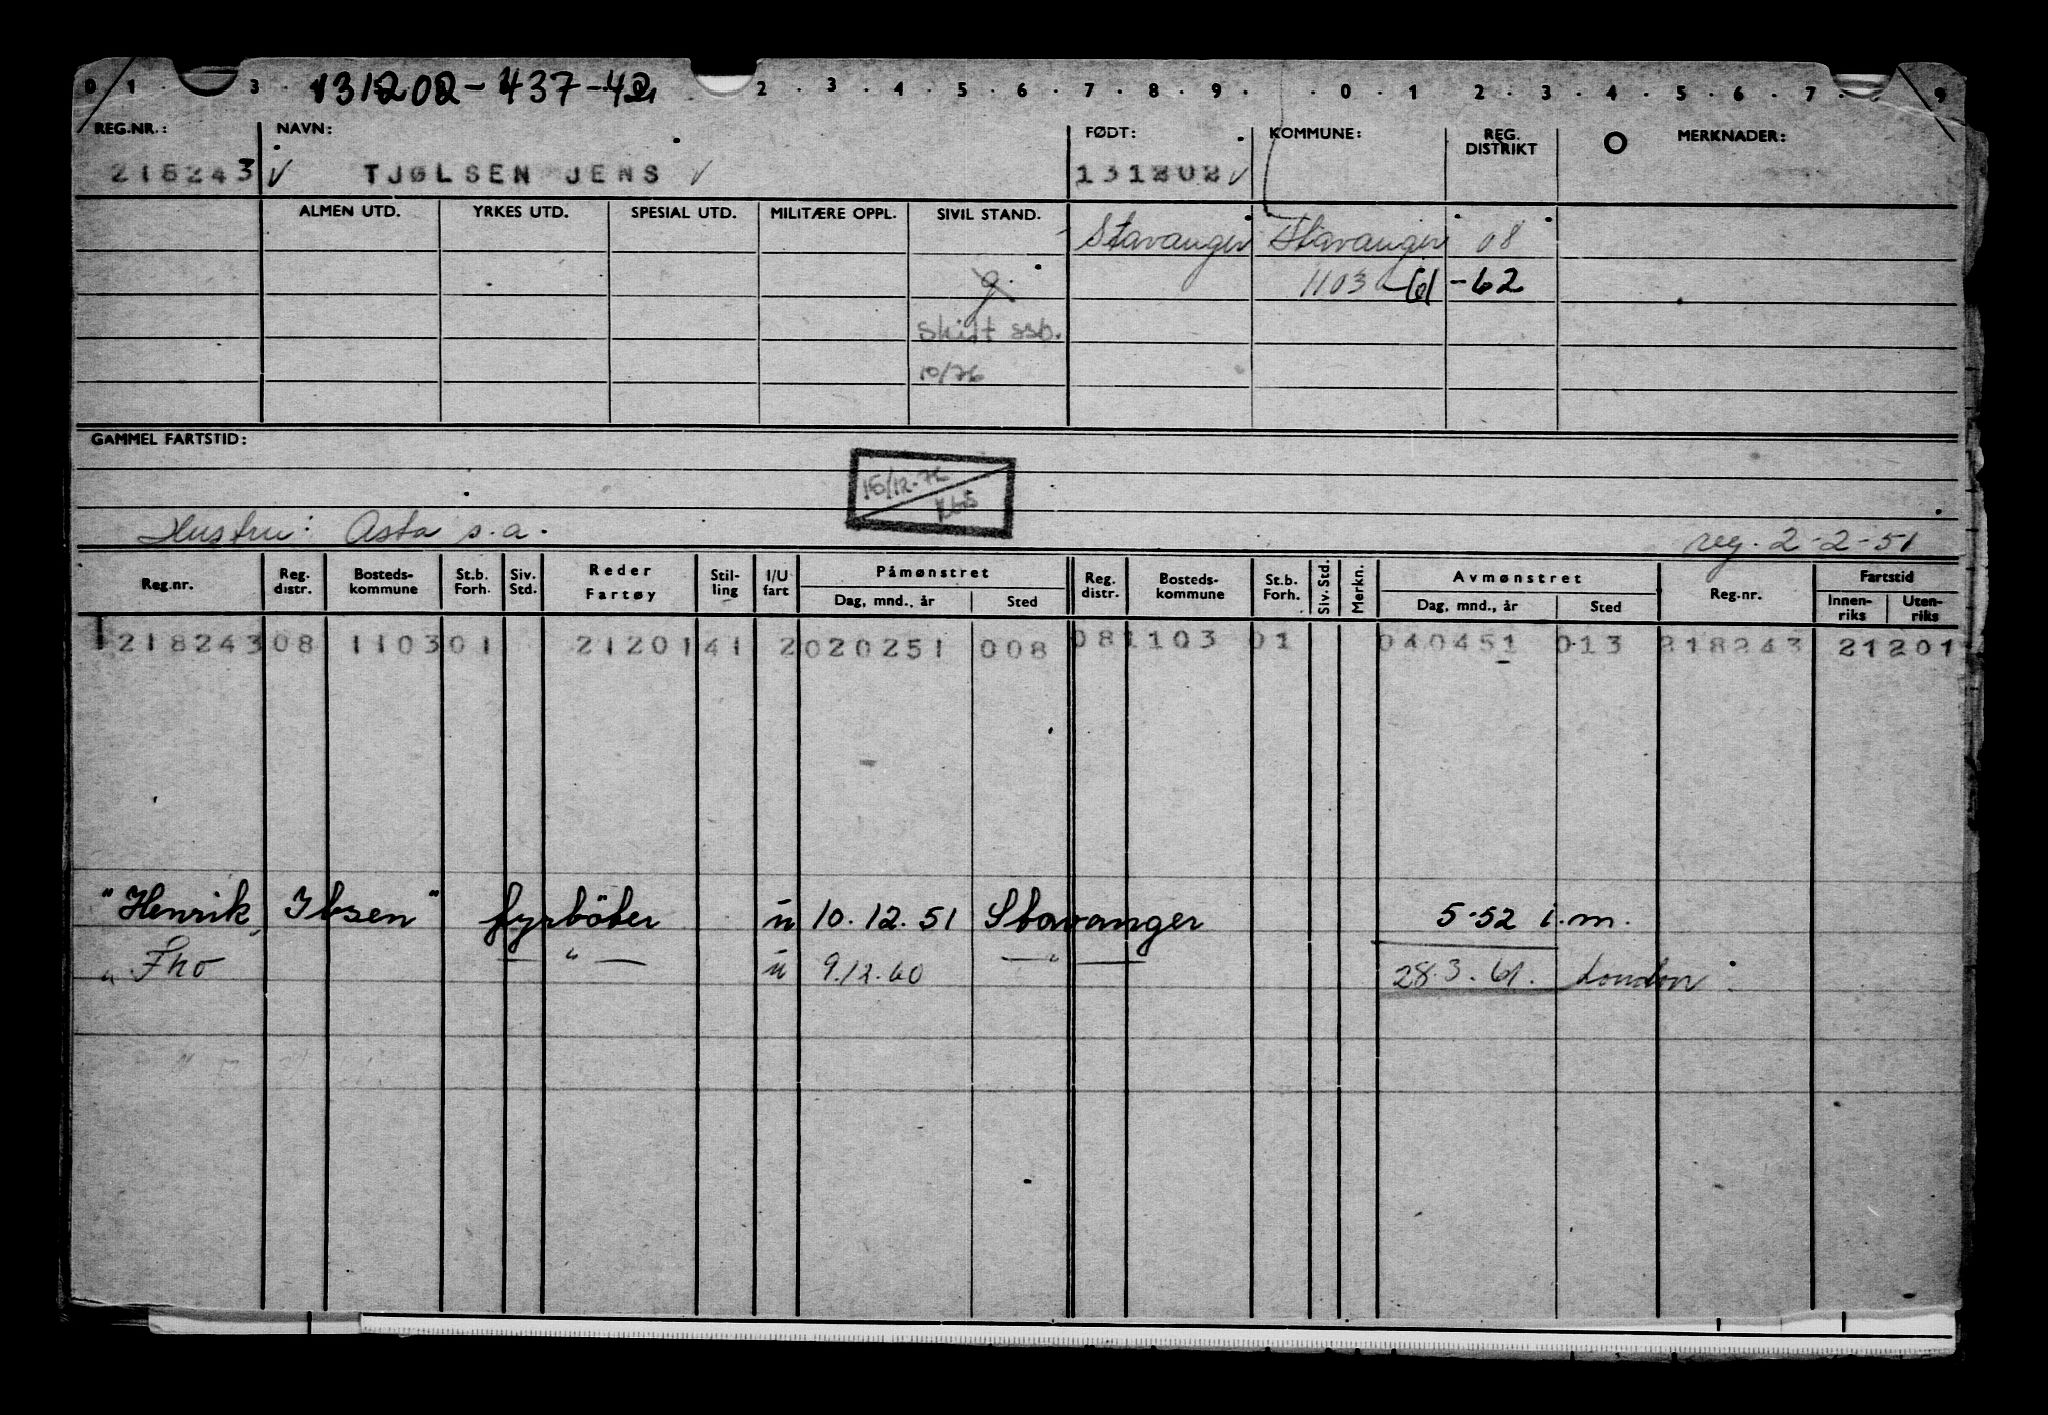 0 1 . 3 131202-437-42 2 . 3 . 4 . 5 . 6 . 7 . 8 . 9 . . 0 . 1 2 . 3 . 4 . 5 . 6 . 7 . 9
REG.NR.: NAVN: FØDT: KOMMUNE: REG. DISTRIKT O MERKNADER:
218243 √ TJØLSEN JENS √ 131202 √
ALMEN UTD. YRKES UTD. SPESIAL UTD. MILITÆRE OPPL. SIVIL STAND. Stavanger Stavanger 08
g. 1103 61-62
Skilt ssb.
10/76
GAMMEL FARTSTID:
Hustru: Asta s.a. reg. 2-2-51
Reg.nr. Reg. distr. Bosteds-kommune St.b. Forh. Siv. Std. Reder Fartøy Stil-ling I/U fart Påmønstret Reg. distr. Bosteds-kommune St.b. Forh. Siv. Std. Merkn. Avmønstret Reg.nr. Fartstid
Dag, mnd., år Sted Dag, mnd., år Sted Innen-riks Uten-riks
1218243 08 1103 01 21201 41 2 020251 008 08 1103 01 040451 013 218243 21201
"Henrik Ibsen" fyrböter u 10.12.51 Stavanger 5-52 i.m.
" Fho — " — u 9.12.60 — " — 28.3.61. London